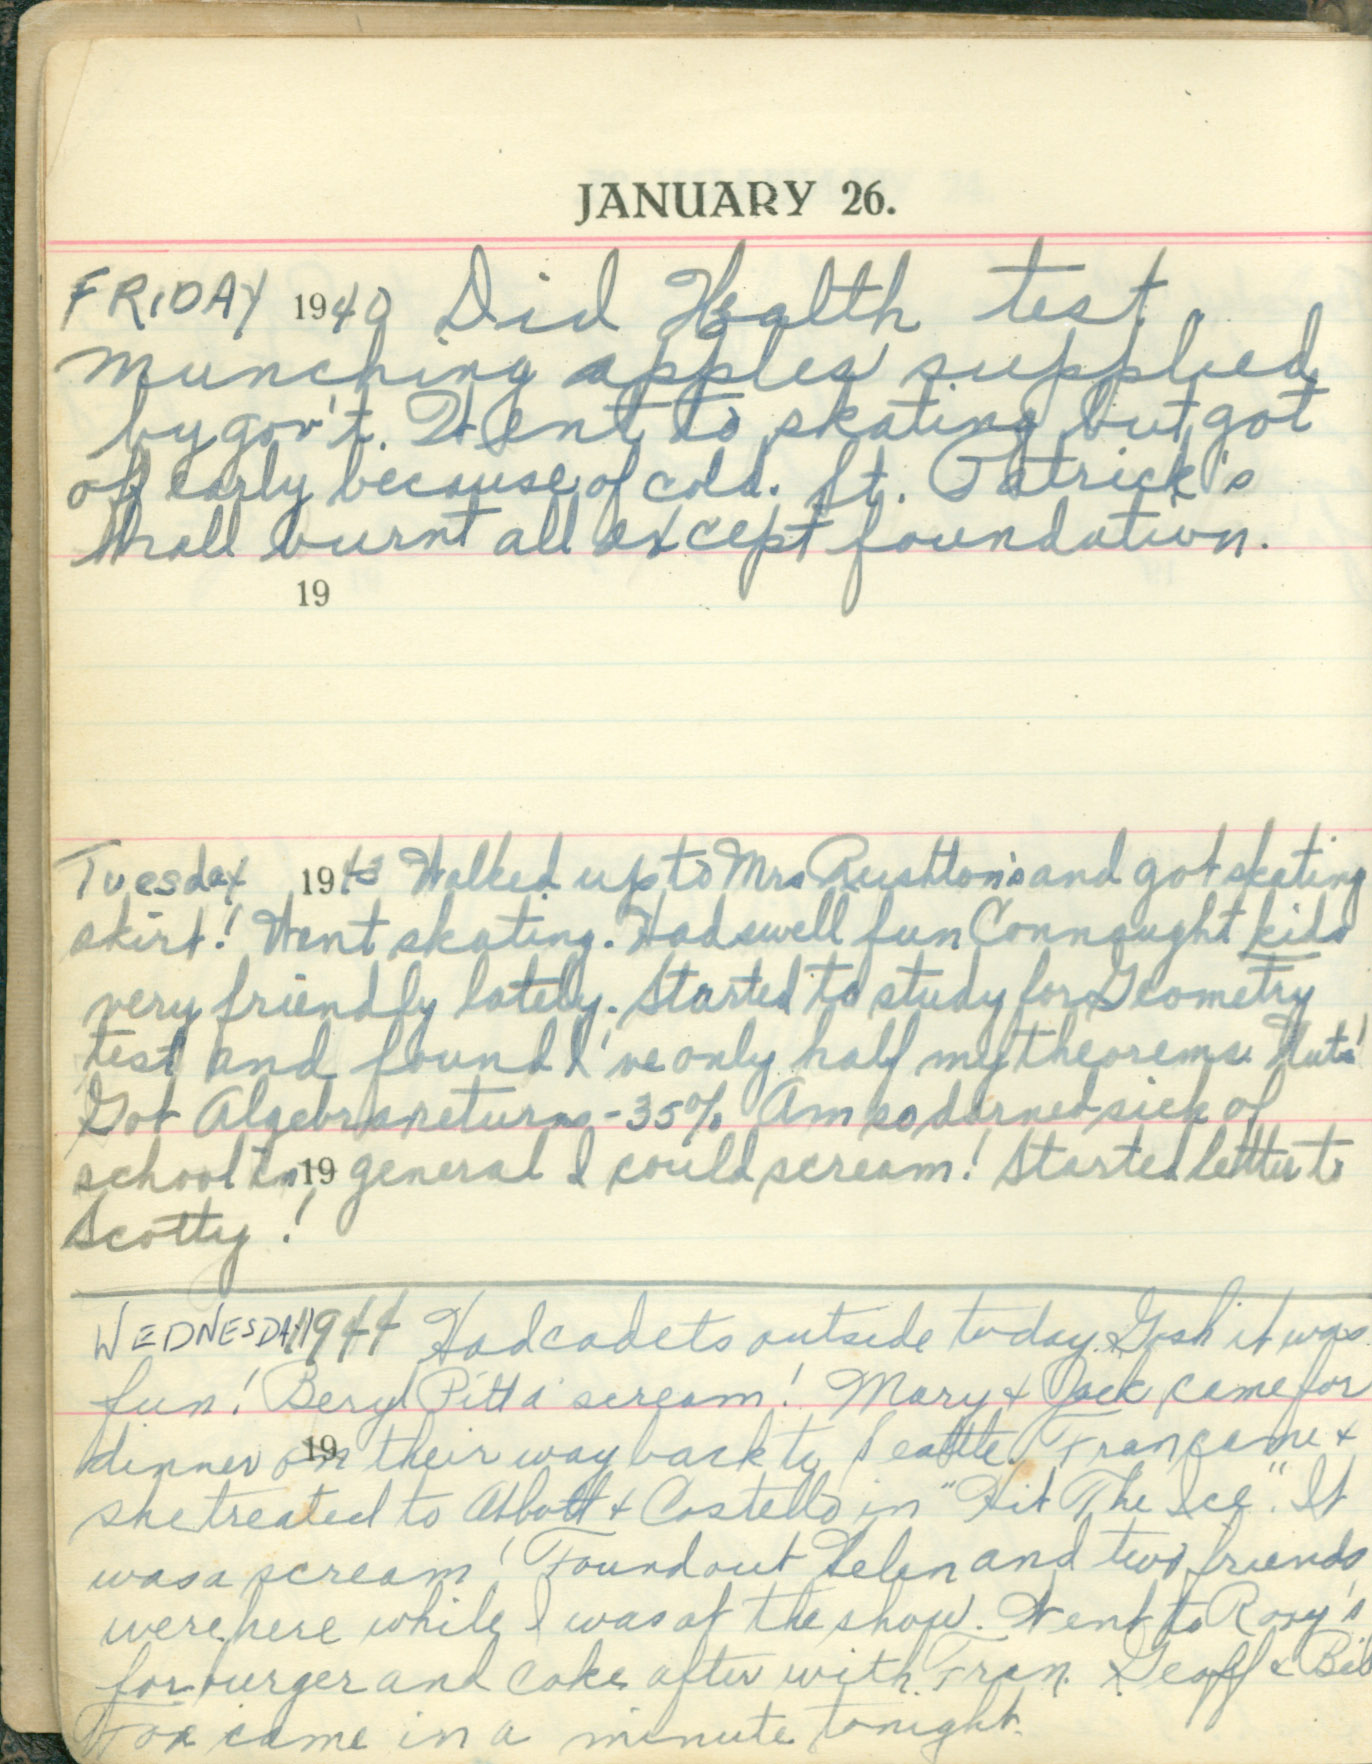 JANUARY 26.
FRIDAY 1940 Did Health test
munching apples supplied
by gov't. Went to skating but got
off early because of cold. St. Patrick's
hall burnt all except foundation.
19
Tuesday 1943 Walked up to Mrs Rushton's and got skating
skirt! Went skating. Had swell fun Connaught kids
very friendly lately. Started to study for Geometry
test and found I've only half my theorems. Nuts!
Got Algebra returns - 35% Am so darned sick of
school in 19 general I could scream! Started letter to
Scotty!
WEDNESDAY 1944 Had cadets outside today. Gosh it was
fun! Beryl Pitt a scream! Mary & Jack came for
dinner on 19 their way back to Seattle. Fran came &
she treated to Abbott & Costello in "Hit The Ice". It
was a scream! Found out Helen and two friends
were here while I was at the show. Went to Rory's
for burger and coke after with Fran. Geoff & Bill
Fox came in a minute tonight.